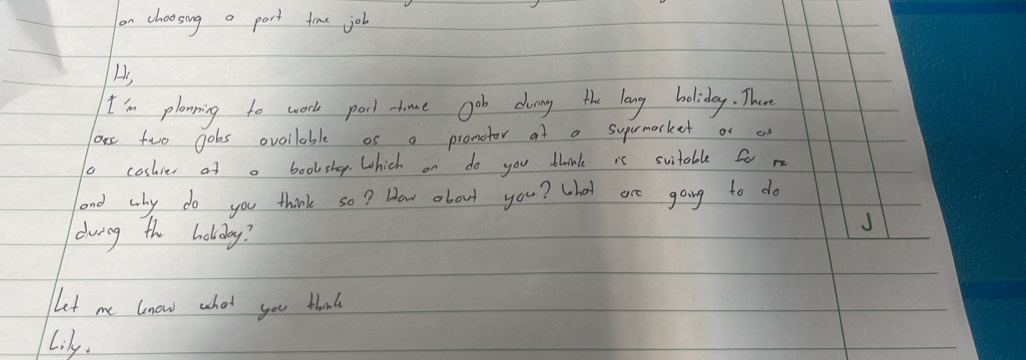 on choosing a part time job
Hi,
I'm planning to work part-time job during the long holiday. There
are two jobs available as a promoter at a supermarket or as
a cashier at a bookshop. Which on do you think is suitable for me
and why do you think so? How about you? What are going to do
during the holiday?
J
Let me know what you think
Lily.